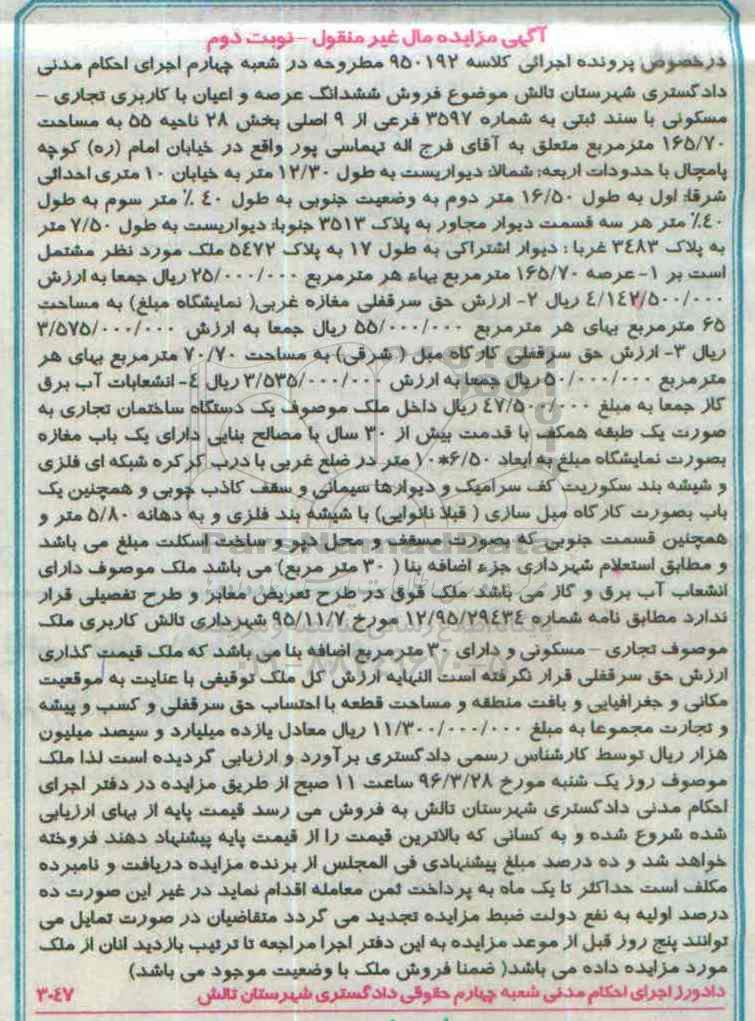 آگهی مزایده مال غیر منقول - نوبت دوم
درخصوص پرونده اجرائی کلاسه ۹۵۰۱۹۲ مطروحه در شعبه چهارم اجرای احکام مدنی
دادگستری شهرستان تالش موضوع فروش ششدانگ عرصه و اعیان با کاربری تجاری -
مسکونی با سند ثبتی به شماره ۳۵۹۷ فرعی از ۹ اصلی بخش ۲۸ ناحیه ۵۵ به مساحت
۱۶۵/۷۰ مترمربع متعلق به آقای فرج اله تهماسی پور واقع در خیابان امام (ره) کوچه
پامچال با حدودات اربعه: شمالا: دیواریست به طول ۱۲/۳۰ متر به خیابان ۱۰ متری احداثی
شرقا: اول به طول ۱۶/۵۰ متر دوم به وضعیت جنوبی به طول ۴۰ ٪ متر سوم به طول
۴۰٪ متر هر سه قسمت دیوار مجاور به پلاک ۳۵۱۳ جنوبا: دیواریست به طول ۷/۵۰ متر
به پلاک ۳۴۸۳ غربا : دیوار اشتراکی به طول ۱۷ به پلاک ۵۴۷۲ ملک مورد نظر مشتمل
است بر ۱- عرصه ۱۶۵/۷۰ متر مربع بهاء هر مترمربع ۲۵/۰۰۰/۰۰۰ ریال جمعا به ارزش
۴/۱۴۲/۵۰۰/۰۰۰ ریال ۲- ارزش حق سرقفلی مغازه غربی( نمایشگاه مبلغ) به مساحت
۶۵ مترمربع بهای هر مترمربع ۵۵/۰۰۰/۰۰۰ ریال جمعا به ارزش ۳/۵۷۵/۰۰۰/۰۰۰
ریال ۳- ارزش حق سرقفلی کارگاه مبل ( شرقی) به مساحت ۷۰/۷۰ مترمربع بهای هر
مترمربع ۵۰/۰۰۰/۰۰۰ ریال جمعا به ارزش ۳/۵۳۵/۰۰۰/۰۰۰ ریال ۴- انشعابات آب برق
گاز جمعا به مبلغ ۴۷/۵۰۰/۰۰۰ ریال داخل ملک موصوف یک دستگاه ساختمان تجاری به
صورت یک طبقه همکف با قدمت بیش از ۳۰ سال با مصالح بنایی دارای یک باب مغازه
بصورت نمایشگاه مبلغ به ابعاد ۶/۵۰*۱۰ متر در ضلع غربی با درب کرکره شبکه ای فلزی
و شیشه بند سکوریت کف سرامیک و دیوارها سیمانی و سقف کاذب چوبی و همچنین یک
باب بصورت کارگاه مبل سازی ( قبلا نانوایی) با شیشه بند فلزی و به دهانه ۵/۸۰ متر و
همچنین قسمت جنوبی که بصورت مسقف و محل دپر و ساخت اسکلت مبلغ می باشد
و مطابق استعلام شهرداری جزء اضافه بنا ( ۳۰ متر مربع) می باشد ملک موصوف دارای
انشعاب آب برق و گاز می باشد ملک فوق در طرح تعریض معابر و طرح تفصیلی قرار
ندارد مطابق نامه شماره ۱۲/۹۵/۲۹۴۳۴ مورخ ۹۵/۱۱/۷ شهرداری تالش کاربری ملک
موصوف تجاری - مسکونی و دارای ۳۰ مترمربع اضافه بنا می باشد که ملک قیمت گذاری
ارزش حق سرقفلی قرار نگرفته است النهایه ارزش کل ملک توقیفی با عنایت به موقعیت
مکانی و جغرافیایی و بافت منطقه و مساحت قطعه با احتساب حق سرقفلی و کسب و پیشه
و تجارت مجموعا به مبلغ ۱۱/۳۰۰/۰۰۰/۰۰۰ ریال معادل یازده میلیارد و سیصد میلیون
هزار ریال توسط کارشناس رسمی دادگستری برآورد و ارزیابی گردیده است لذا ملک
موصوف روز یک شنبه مورخ ۹۶/۳/۲۸ ساعت ۱۱ صبح از طریق مزایده در دفتر اجرای
احکام مدنی دادگستری شهرستان تالش به فروش می رسد قیمت پایه از بهای ارزیابی
شده شروع شده و به کسانی که بالاترین قیمت را از قیمت پایه پیشنهاد دهند فروخته
خواهد شد و ده درصد مبلغ پیشنهادی فی المجلس از برنده مزایده دریافت و نامبرده
مکلف است حداکثر تا یک ماه به پرداخت ثمن معامله اقدام نماید در غیر این صورت ده
درصد اولیه به نفع دولت ضبط مزایده تجدید می گردد متقاضیان در صورت تمایل می
توانند پنج روز قبل از موعد مزایده به این دفتر اجرا مراجعه تا ترتیب بازدید انان از ملک
مورد مزایده داده می باشد( ضمنا فروش ملک با وضعیت موجود می باشد)
دادورز اجرای احکام مدنی شعبه چهارم حقوقی دادگستری شهرستان تالش ۳۰۴۷
ParsNamadData